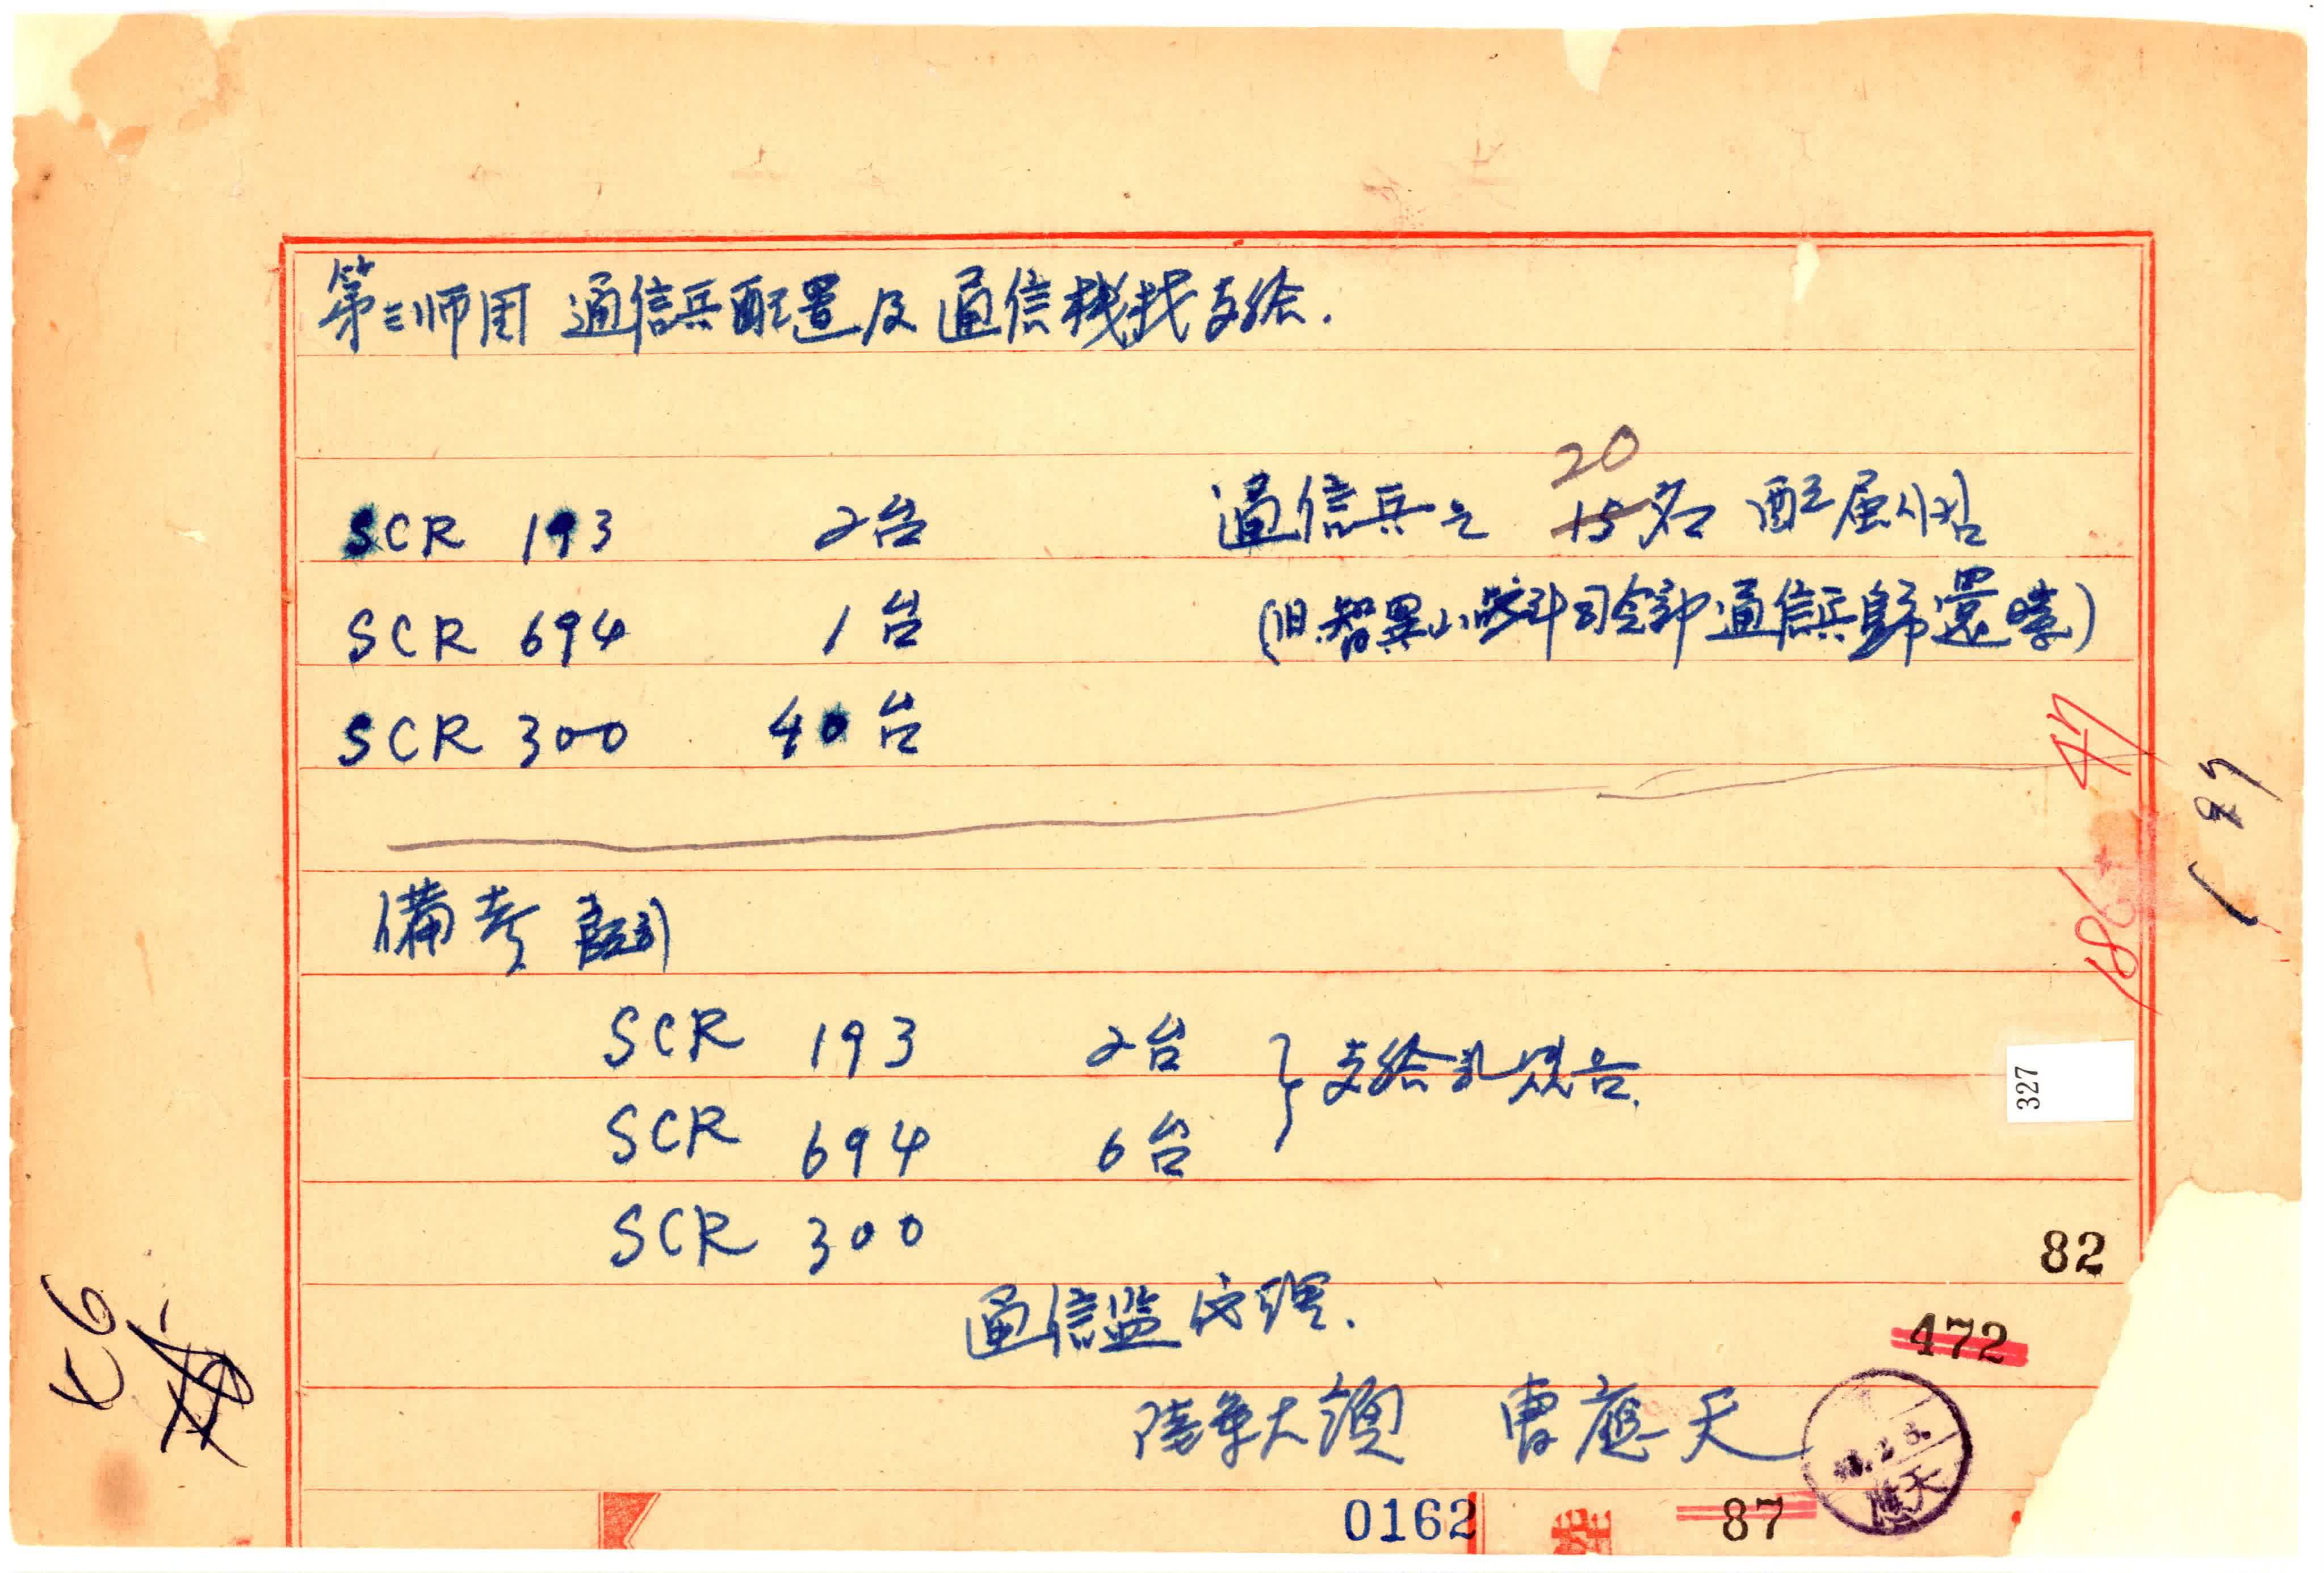 第三师団 通信兵配置及 通信機材支給.
20
SCR 193 2台 通信兵는 15名 配属시킴
SCR 694 1台 (旧智異山戰斗司令部 通信兵歸還後)
SCR 300 40台
47
187
186
備考
SCR 193 2台
支給
SCR 694 6台
SCR 300
327
82
通信監 代理.
472
陸軍大領 曺應天
應天
0162 87